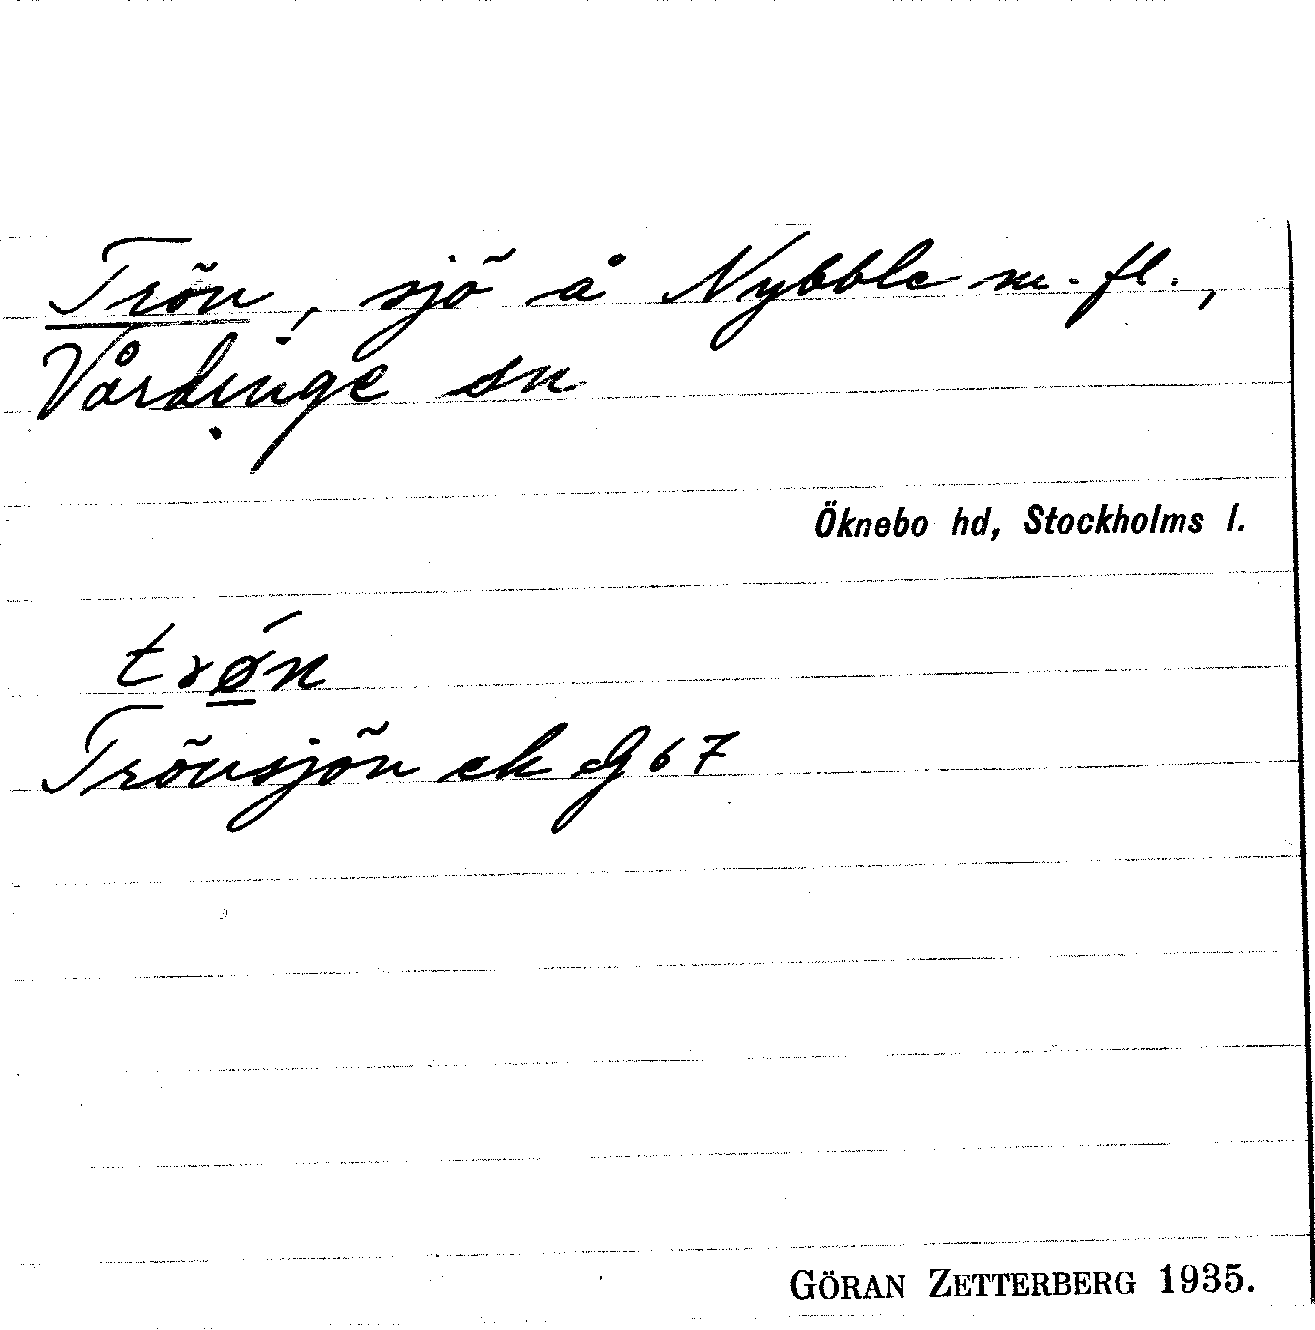 Trön, sjö å Nybble m. fl.,
Vårdinge sn
Öknebo hd, Stockholms l.
trǿ̱n
Trönsjön ek G 67
GÖRAN ZETTERBERG 1935.